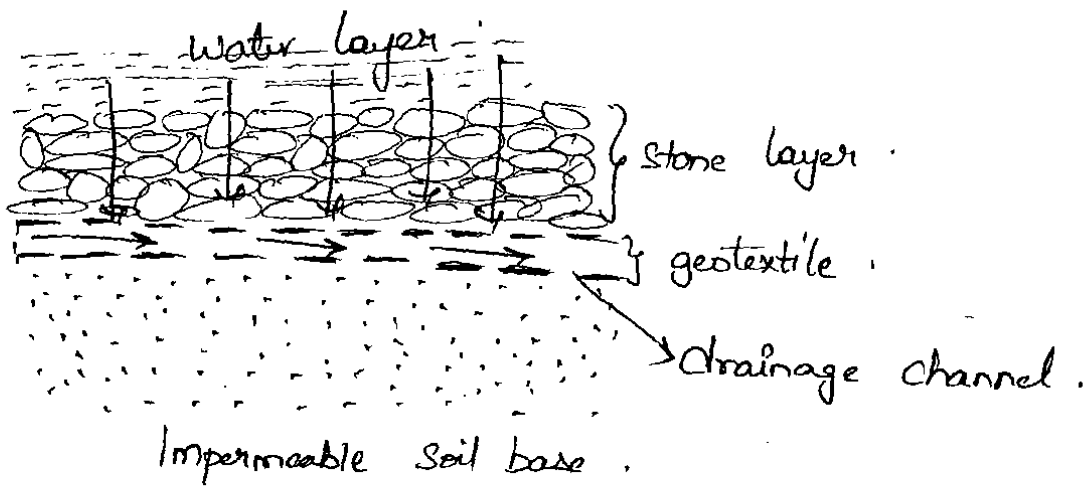 Water layer
Stone layer .
geotextile .
drainage channel .
Impermeable soil base .